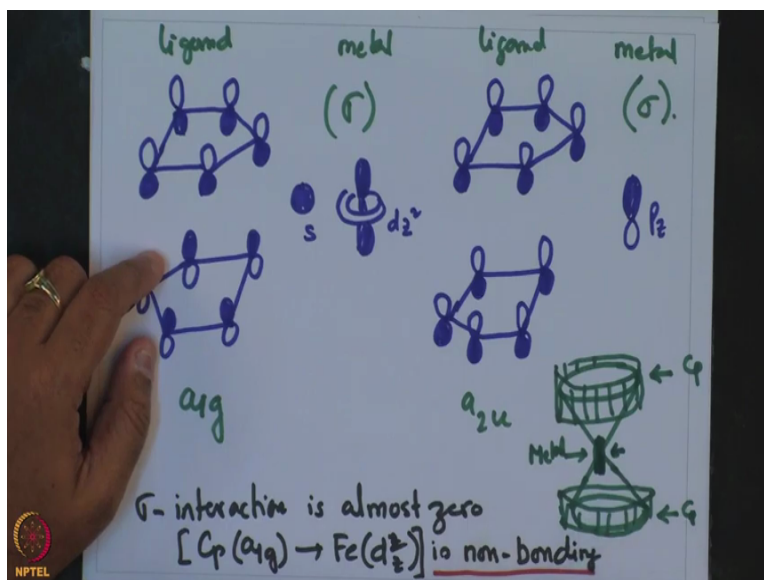 ligand metal ligand metal
(σ) (σ).
s dz² Pz
a1g a2u
← Cp
Metal → ←
← Cp
σ- interaction is almost zero
[ Cp (a1g) → Fe(dz²)] is non-bonding
NPTEL